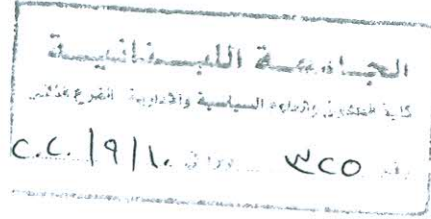 الجامعة اللبنانية
كلية الحقوق والعلوم السياسية والادارية الفرع الثالث
رقم ٣٢٥ تاريخ ١٠/٩/٢٠٢٠